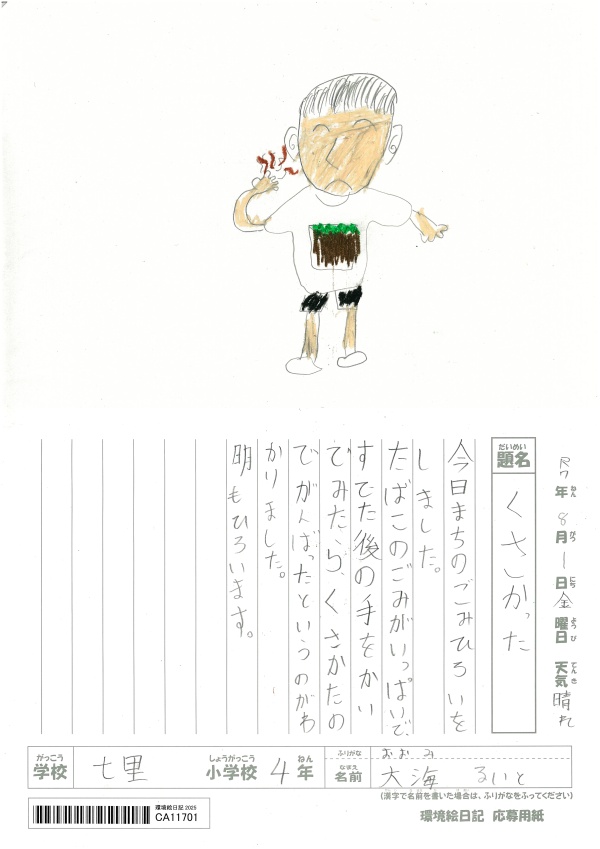 R7年 8月 1日 金曜日 天気 晴れ
ねん がつ にち ようび てんき
だいめい
題名
くさかった
今日まちのごみひろいを
しました。
たばこのごみがいっぱいで、
すてた後の手をかい
でみたら、くさかたの
でがんばったというのがわ
かりました。
明もひろいます。
がっこう しょうがっこう ねん ふりがな おおみ
学校 七里 小学校 4年 なまえ 名前 大海 るいと
(漢字で名前を書いた場合は、ふりがなをふってください)
環境絵日記 2025
CA11701
環境絵日記 応募用紙